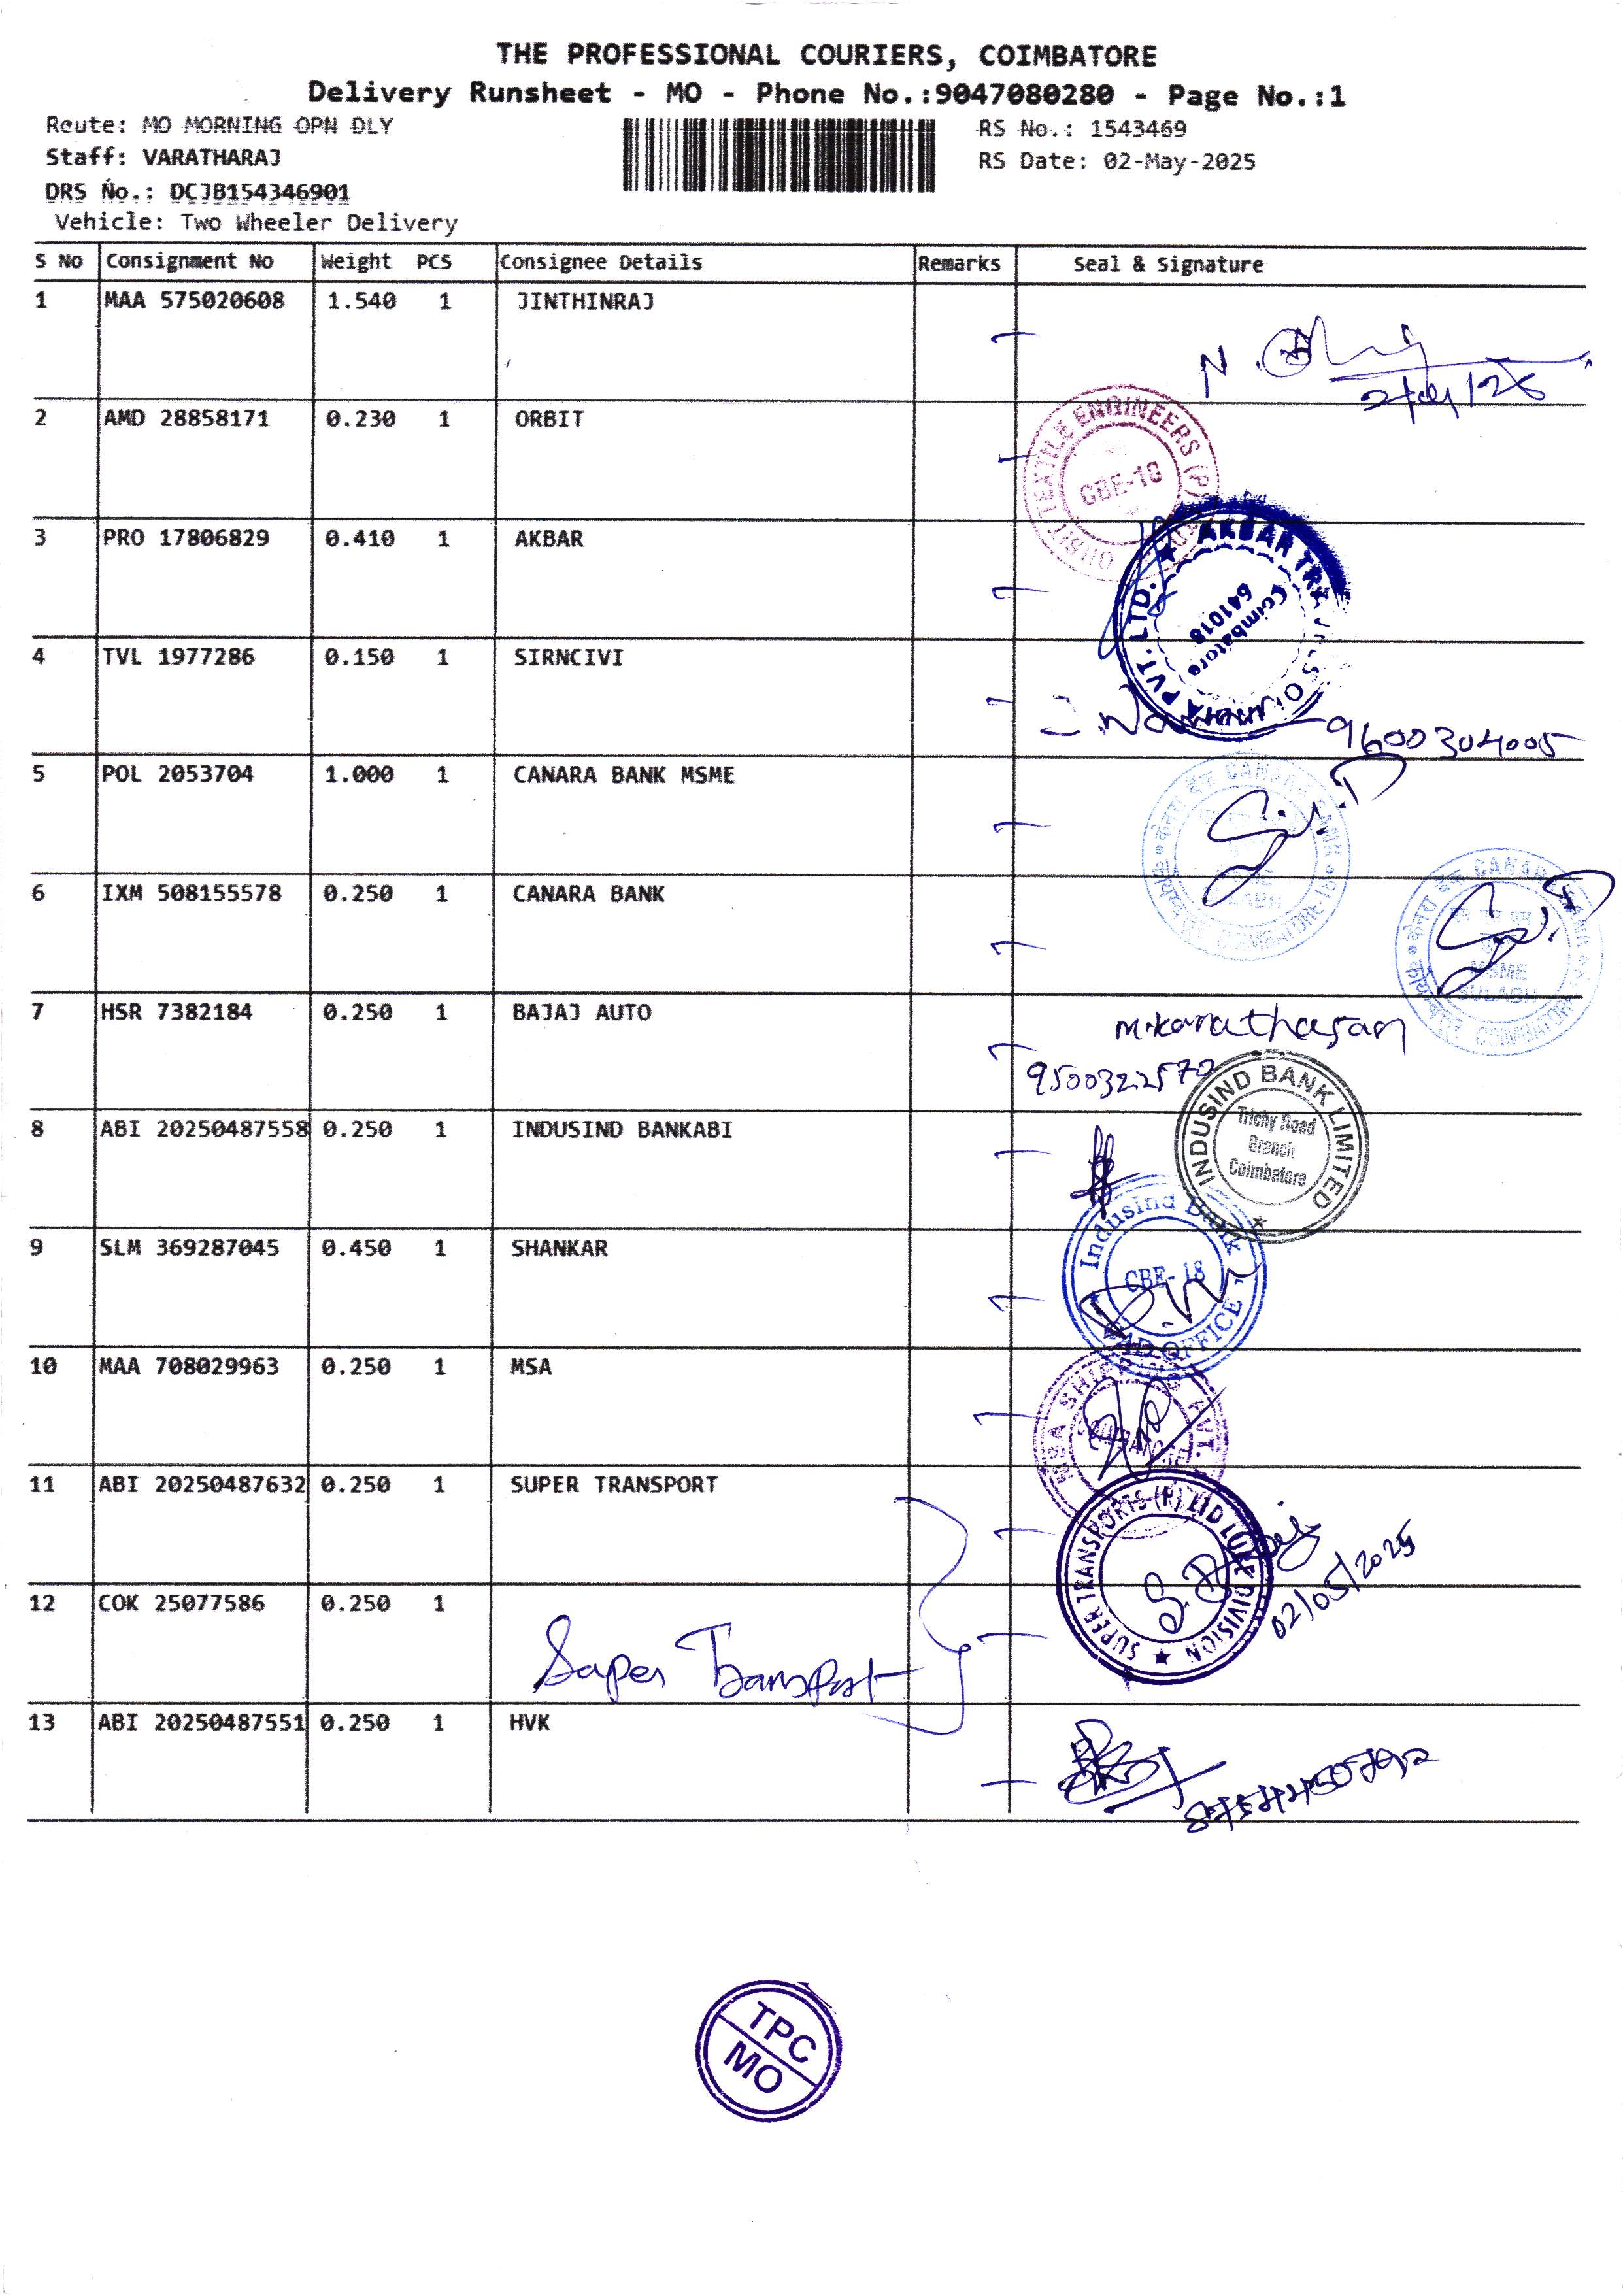 THE PROFESSIONAL COURIERS, COIMBATORE
Delivery Runsheet - MO - Phone No.:9047080280 - Page No.:1
Route: MO MORNING OPN DLY
RS No.: 1543469
Staff: VARATHARAJ
RS Date: 02-May-2025
DRS No.: DCJB154346901
Vehicle: Two Wheeler Delivery
S No Consignment No Weight PCS Consignee Details Remarks Seal & Signature
1 MAA 575020608 1.540 1 JINTHINRAJ
N.
2 AMD 28858171 0.230 1 ORBIT
ORBIT TEXTILE ENGINEERS (P)
CBE-18
3 PRO 17806829 0.410 1 AKBAR
AKBAR INDIA PVT. LTD.
Coimbatore
641018
4 TVL 1977286 0.150 1 SIRNCIVI
9600304005
5 POL 2053704 1.000 1 CANARA BANK MSME
CANARA BANK COIMBATORE
6 IXM 508155578 0.250 1 CANARA BANK
CANARA BANK COIMBATORE
MSME
SULABH
7 HSR 7382184 0.250 1 BAJAJ AUTO
9500322572
8 ABI 20250487558 0.250 1 INDUSIND BANKABI
INDUSIND BANK LIMITED
Trichy Road
Branch
Coimbatore
9 SLM 369287045 0.450 1 SHANKAR
Indusind Bank
CBE-18
OFFICE
10 MAA 708029963 0.250 1 MSA
11 ABI 20250487632 0.250 1 SUPER TRANSPORT
SUPER TRANSPORTS (P) LTD LUBE DIVISION
02/05/2025
12 COK 25077586 0.250 1
Super Transport
13 ABI 20250487551 0.250 1 HVK
TPC
MO